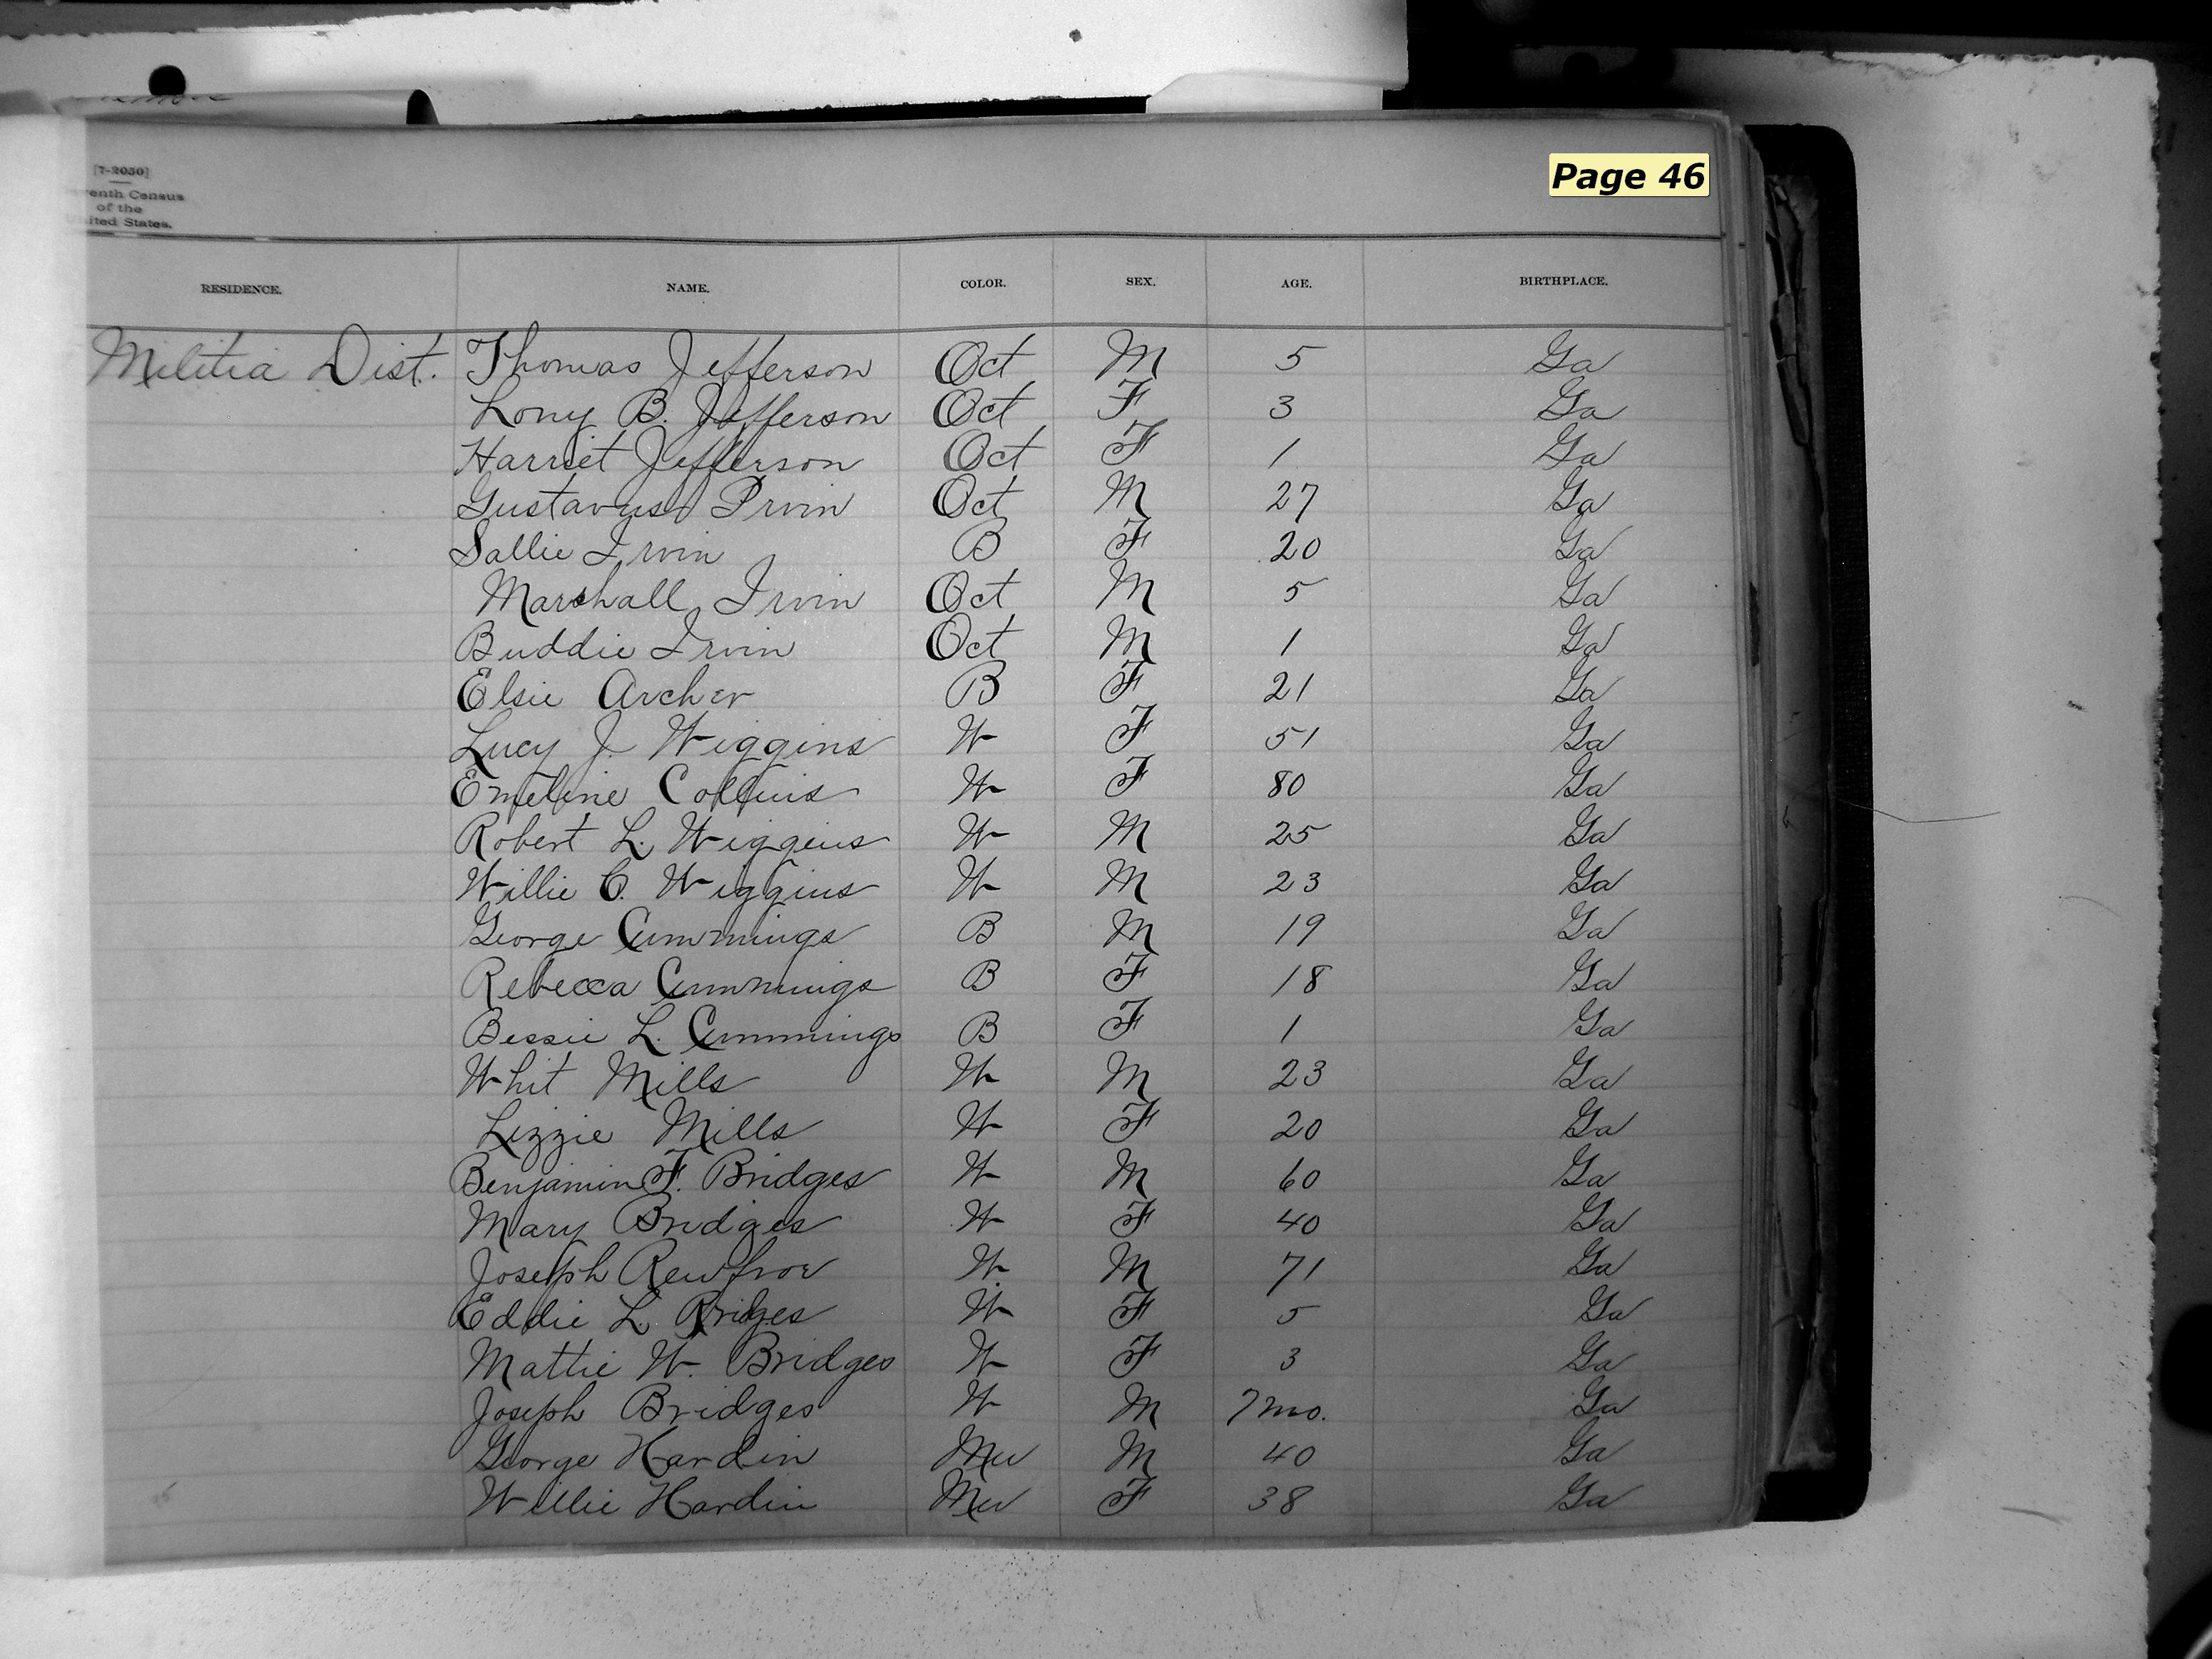 Page 46
[7-2050]
enth Census
of the
ited States.
RESIDENCE. NAME. COLOR. SEX. AGE. BIRTHPLACE.
Militia Dist. Thomas Jefferson Oct M 5 Ga
Lony B. Jefferson Oct F 3 Ga
Harriet Jefferson Oct F 1 Ga
Gustavus Irvin Oct M 27 Ga
Sallie Irvin B F 20 Ga
Marshall Irvin Oct M 5 Ga
Buddie Irvin Oct M 1 Ga
Elsie Archer B F 21 Ga
Lucy J. Wiggins W F 51 Ga
Emeline Collins W F 80 Ga
Robert L. Wiggins W M 25 Ga
Willie C. Wiggins W M 23 Ga
George Cummings B M 19 Ga
Rebecca Cummings B F 18 Ga
Bessie L. Cummings B F 1 Ga
Whit Mills W M 23 Ga
Lizzie Mills W F 20 Ga
Benjamin F. Bridges W M 60 Ga
Mary Bridges W F 40 Ga
Joseph Renfroe W M 71 Ga
Eddie L Bridges W F 5 Ga
Mattie W. Bridges W F 3 Ga
Joseph Bridges W M 7 mo. Ga
George Hardin Mu M 40 Ga
Willie Hardin Mu F 38 Ga